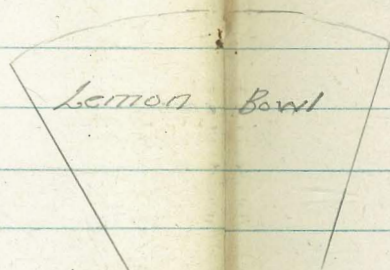 Lemon Bowl